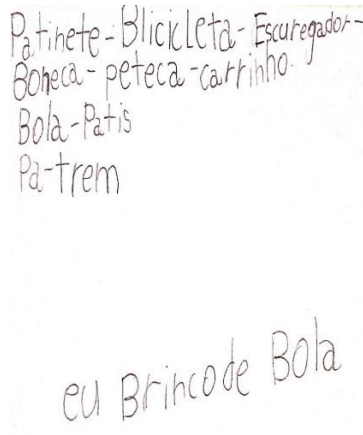 Patinete-Blicicleta-Escuregador-
Boneca-peteca-carrinho-
Bola-Patis
Pa-trem
eu Brinco de Bola